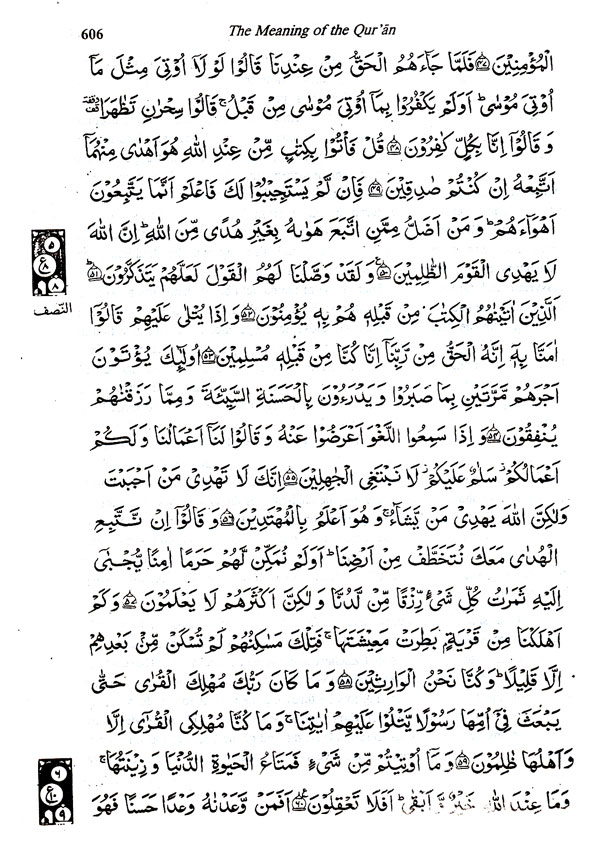 606
The Meaning of the Qur'ān
الْمُؤْمِنِيْنَ ﴿۴۷﴾ فَلَمَّا جَآءَهُمُ الْحَقُّ مِنْ عِنْدِنَا قَالُوْا لَوْ لَآ اُوْتِيَ مِثْلَ مَآ
اُوْتِيَ مُوْسٰى ؕ اَوَلَمْ يَكْفُرُوْا بِمَآ اُوْتِيَ مُوْسٰى مِنْ قَبْلُ ۚ قَالُوْا سِحْرٰنِ تَظٰهَرَا
وَ قَالُوْٓا اِنَّا بِكُلٍّ كٰفِرُوْنَ ﴿۴۸﴾ قُلْ فَاْتُوْا بِكِتٰبٍ مِّنْ عِنْدِ اللّٰهِ هُوَ اَهْدٰى مِنْهُمَآ
اَتَّبِعْهُ اِنْ كُنْتُمْ صٰدِقِيْنَ ﴿۴۹﴾ فَاِنْ لَّمْ يَسْتَجِيْبُوْا لَكَ فَاعْلَمْ اَنَّمَا يَتَّبِعُوْنَ
اَهْوَآءَهُمْ ؕ وَ مَنْ اَضَلُّ مِمَّنِ اتَّبَعَ هَوٰىهُ بِغَيْرِ هُدًى مِّنَ اللّٰهِ ؕ اِنَّ اللّٰهَ
لَا يَهْدِي الْقَوْمَ الظّٰلِمِيْنَ ﴿۵۰﴾ وَ لَقَدْ وَصَّلْنَا لَهُمُ الْقَوْلَ لَعَلَّهُمْ يَتَذَكَّرُوْنَ ﴿۵۱﴾
۵
ع
۸
۸
النّصف
اَلَّذِيْنَ اٰتَيْنٰهُمُ الْكِتٰبَ مِنْ قَبْلِهٖ هُمْ بِهٖ يُؤْمِنُوْنَ ﴿۵۲﴾ وَ اِذَا يُتْلٰى عَلَيْهِمْ قَالُوْٓا
اٰمَنَّا بِهٖٓ اِنَّهُ الْحَقُّ مِنْ رَّبِّنَآ اِنَّا كُنَّا مِنْ قَبْلِهٖ مُسْلِمِيْنَ ﴿۵۳﴾ اُولٰٓئِكَ يُؤْتَوْنَ
اَجْرَهُمْ مَّرَّتَيْنِ بِمَا صَبَرُوْا وَ يَدْرَءُوْنَ بِالْحَسَنَةِ السَّيِّئَةَ وَ مِمَّا رَزَقْنٰهُمْ
يُنْفِقُوْنَ ﴿۵۴﴾ وَ اِذَا سَمِعُوا اللَّغْوَ اَعْرَضُوْا عَنْهُ وَ قَالُوْا لَنَآ اَعْمَالُنَا وَ لَكُمْ
اَعْمَالُكُمْ ؗ سَلٰمٌ عَلَيْكُمْ ؗ لَا نَبْتَغِي الْجٰهِلِيْنَ ﴿۵۵﴾ اِنَّكَ لَا تَهْدِيْ مَنْ اَحْبَبْتَ
وَلٰكِنَّ اللّٰهَ يَهْدِيْ مَنْ يَّشَآءُ ۚ وَ هُوَ اَعْلَمُ بِالْمُهْتَدِيْنَ ﴿۵۶﴾ وَ قَالُوْٓا اِنْ نَّتَّبِعِ
الْهُدٰى مَعَكَ نُتَخَطَّفْ مِنْ اَرْضِنَا ؕ اَوَلَمْ نُمَكِّنْ لَّهُمْ حَرَمًا اٰمِنًا يُّجْبٰٓى
اِلَيْهِ ثَمَرٰتُ كُلِّ شَيْءٍ رِّزْقًا مِّنْ لَّدُنَّا وَ لٰكِنَّ اَكْثَرَهُمْ لَا يَعْلَمُوْنَ ﴿۵۷﴾ وَ كَمْ
اَهْلَكْنَا مِنْ قَرْيَةٍۭ بَطِرَتْ مَعِيْشَتَهَا ۚ فَتِلْكَ مَسٰكِنُهُمْ لَمْ تُسْكَنْ مِّنْۢ بَعْدِهِمْ
اِلَّا قَلِيْلًا ؕ وَ كُنَّا نَحْنُ الْوٰرِثِيْنَ ﴿۵۸﴾ وَ مَا كَانَ رَبُّكَ مُهْلِكَ الْقُرٰى حَتّٰى
يَبْعَثَ فِيْٓ اُمِّهَا رَسُوْلًا يَّتْلُوْا عَلَيْهِمْ اٰيٰتِنَا ۚ وَ مَا كُنَّا مُهْلِكِي الْقُرٰٓى اِلَّا
وَ اَهْلُهَا ظٰلِمُوْنَ ﴿۵۹﴾ وَ مَآ اُوْتِيْتُمْ مِّنْ شَيْءٍ فَمَتَاعُ الْحَيٰوةِ الدُّنْيَا وَ زِيْنَتُهَا ۚ
وَ مَا عِنْدَ اللّٰهِ خَيْرٌ وَّ اَبْقٰى ؕ اَفَلَا تَعْقِلُوْنَ ﴿۶۰﴾ اَفَمَنْ وَّعَدْنٰهُ وَعْدًا حَسَنًا فَهُوَ
۶
ع
۱۰
۹